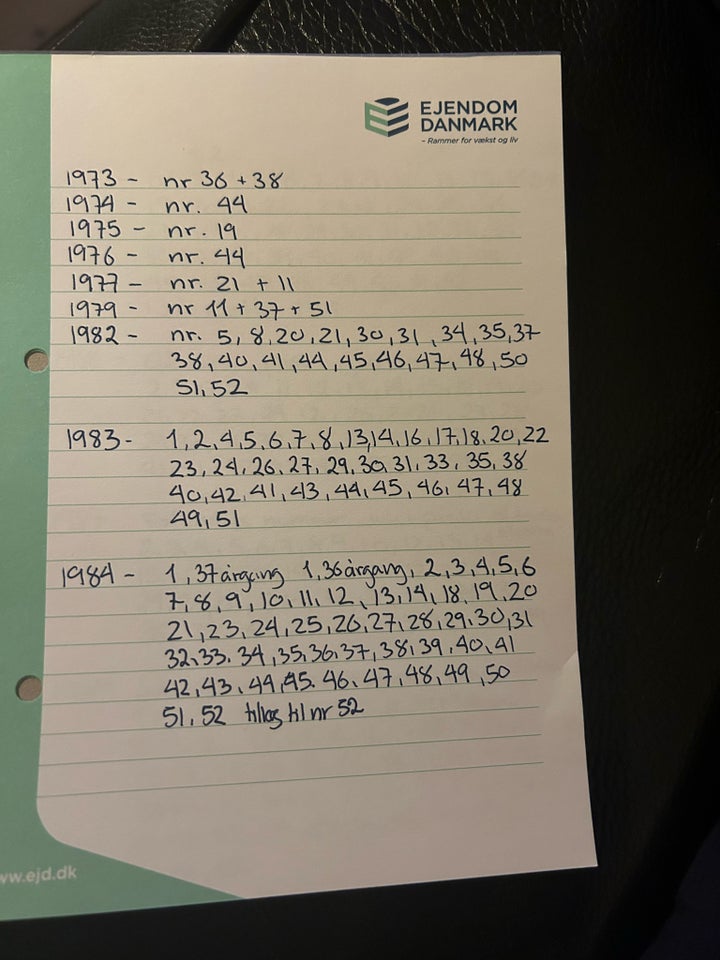 EJENDOM
DANMARK
- Rammer for vækst og liv
1973 - nr 36 + 38
1974 - nr. 44
1975 - nr. 19
1976 - nr. 44
1977 - nr. 21 + 11
1979 - nr 11 + 37 + 51
1982 - nr. 5, 8, 20, 21, 30, 31, 34, 35, 37
38, 40, 41, 44, 45, 46, 47, 48, 50
51, 52
1983 - 1, 2, 4, 5, 6, 7, 8, 13, 14, 16, 17, 18, 20, 22
23, 24, 26, 27, 29, 30, 31, 33, 35, 38
40, 42, 41, 43, 44, 45, 46, 47, 48
49, 51
1984 - 1, 37 årgang 1, 36 årgang, 2, 3, 4, 5, 6
7, 8, 9, 10, 11, 12, 13, 14, 18, 19, 20
21, 23, 24, 25, 26, 27, 28, 29, 30, 31
32, 33. 34, 35, 36, 37, 38, 39, 40, 41
42, 43, 44, 45. 46, 47, 48, 49, 50
51, 52 tillæg til nr 52
ww.ejd.dk